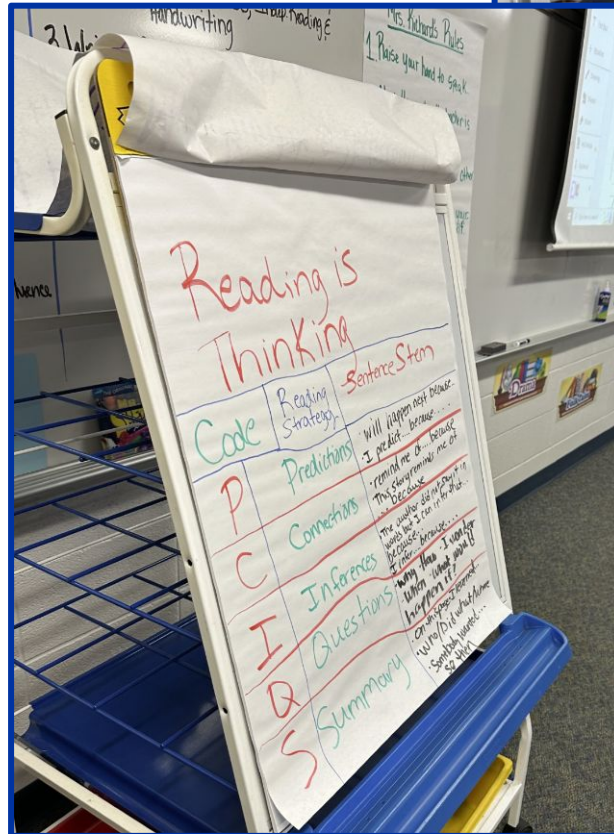 Handwriting
Mrs. Richard's Rules
1. Raise your hand to speak
Reading is
Thinking
Code
Reading
Strategy
Sentence Stem
P
Predictions
· will happen next because..
I predict... because....
C
Connections
· remind me of... because
This story reminds me of
... because
I
Inferences
· The author did not say it in
words but I can infer that...
because...
I infer... because....
Q
Questions
why How · I wonder
when what what if
happen if?
S
Summary
· Who/Did what/where
· Somebody wanted...
so then